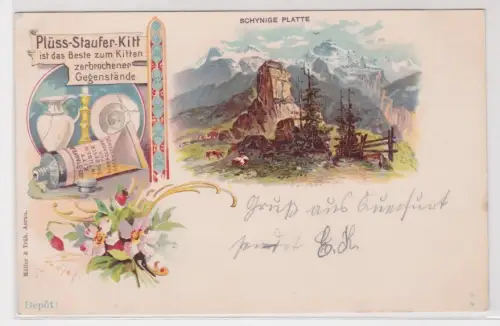 SCHYNIGE PLATTE
Plüss-Staufer-Kitt
ist das Beste zum Kitten
zerbrochener
Gegenstände
Gruß aus Querfurt
sendet E. K.
Müller & Trüb, Aarau.
Depôt: